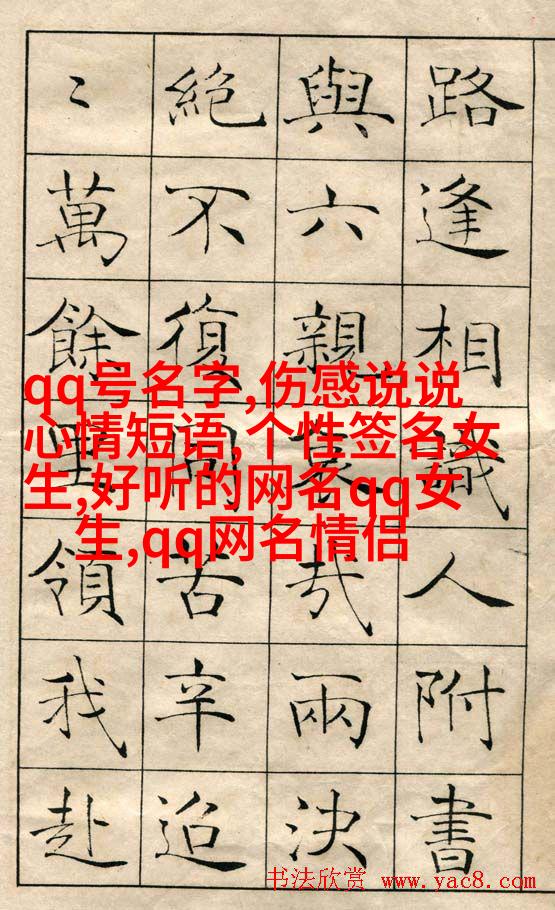 路逢相識人附書
與六親哀哉兩決
絕不復同苦辛迢
〻萬餘里領我赴
qq号名字,伤感说说
心情短语,个性签名女
生,好听的网名qq女
生,qq网名情侣
书法欣赏 www.yac8.com